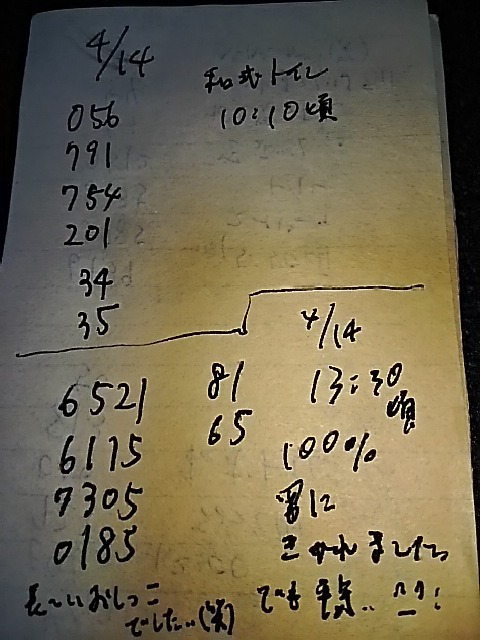 4/14
和式トイレ
10:10頃
056
791
754
201
34
35
4/14
13:30
頃
100%
6521
6175
7305
0185
81
65
長〜いおしっこ
でした..(笑)
きかれました
でも 平気..